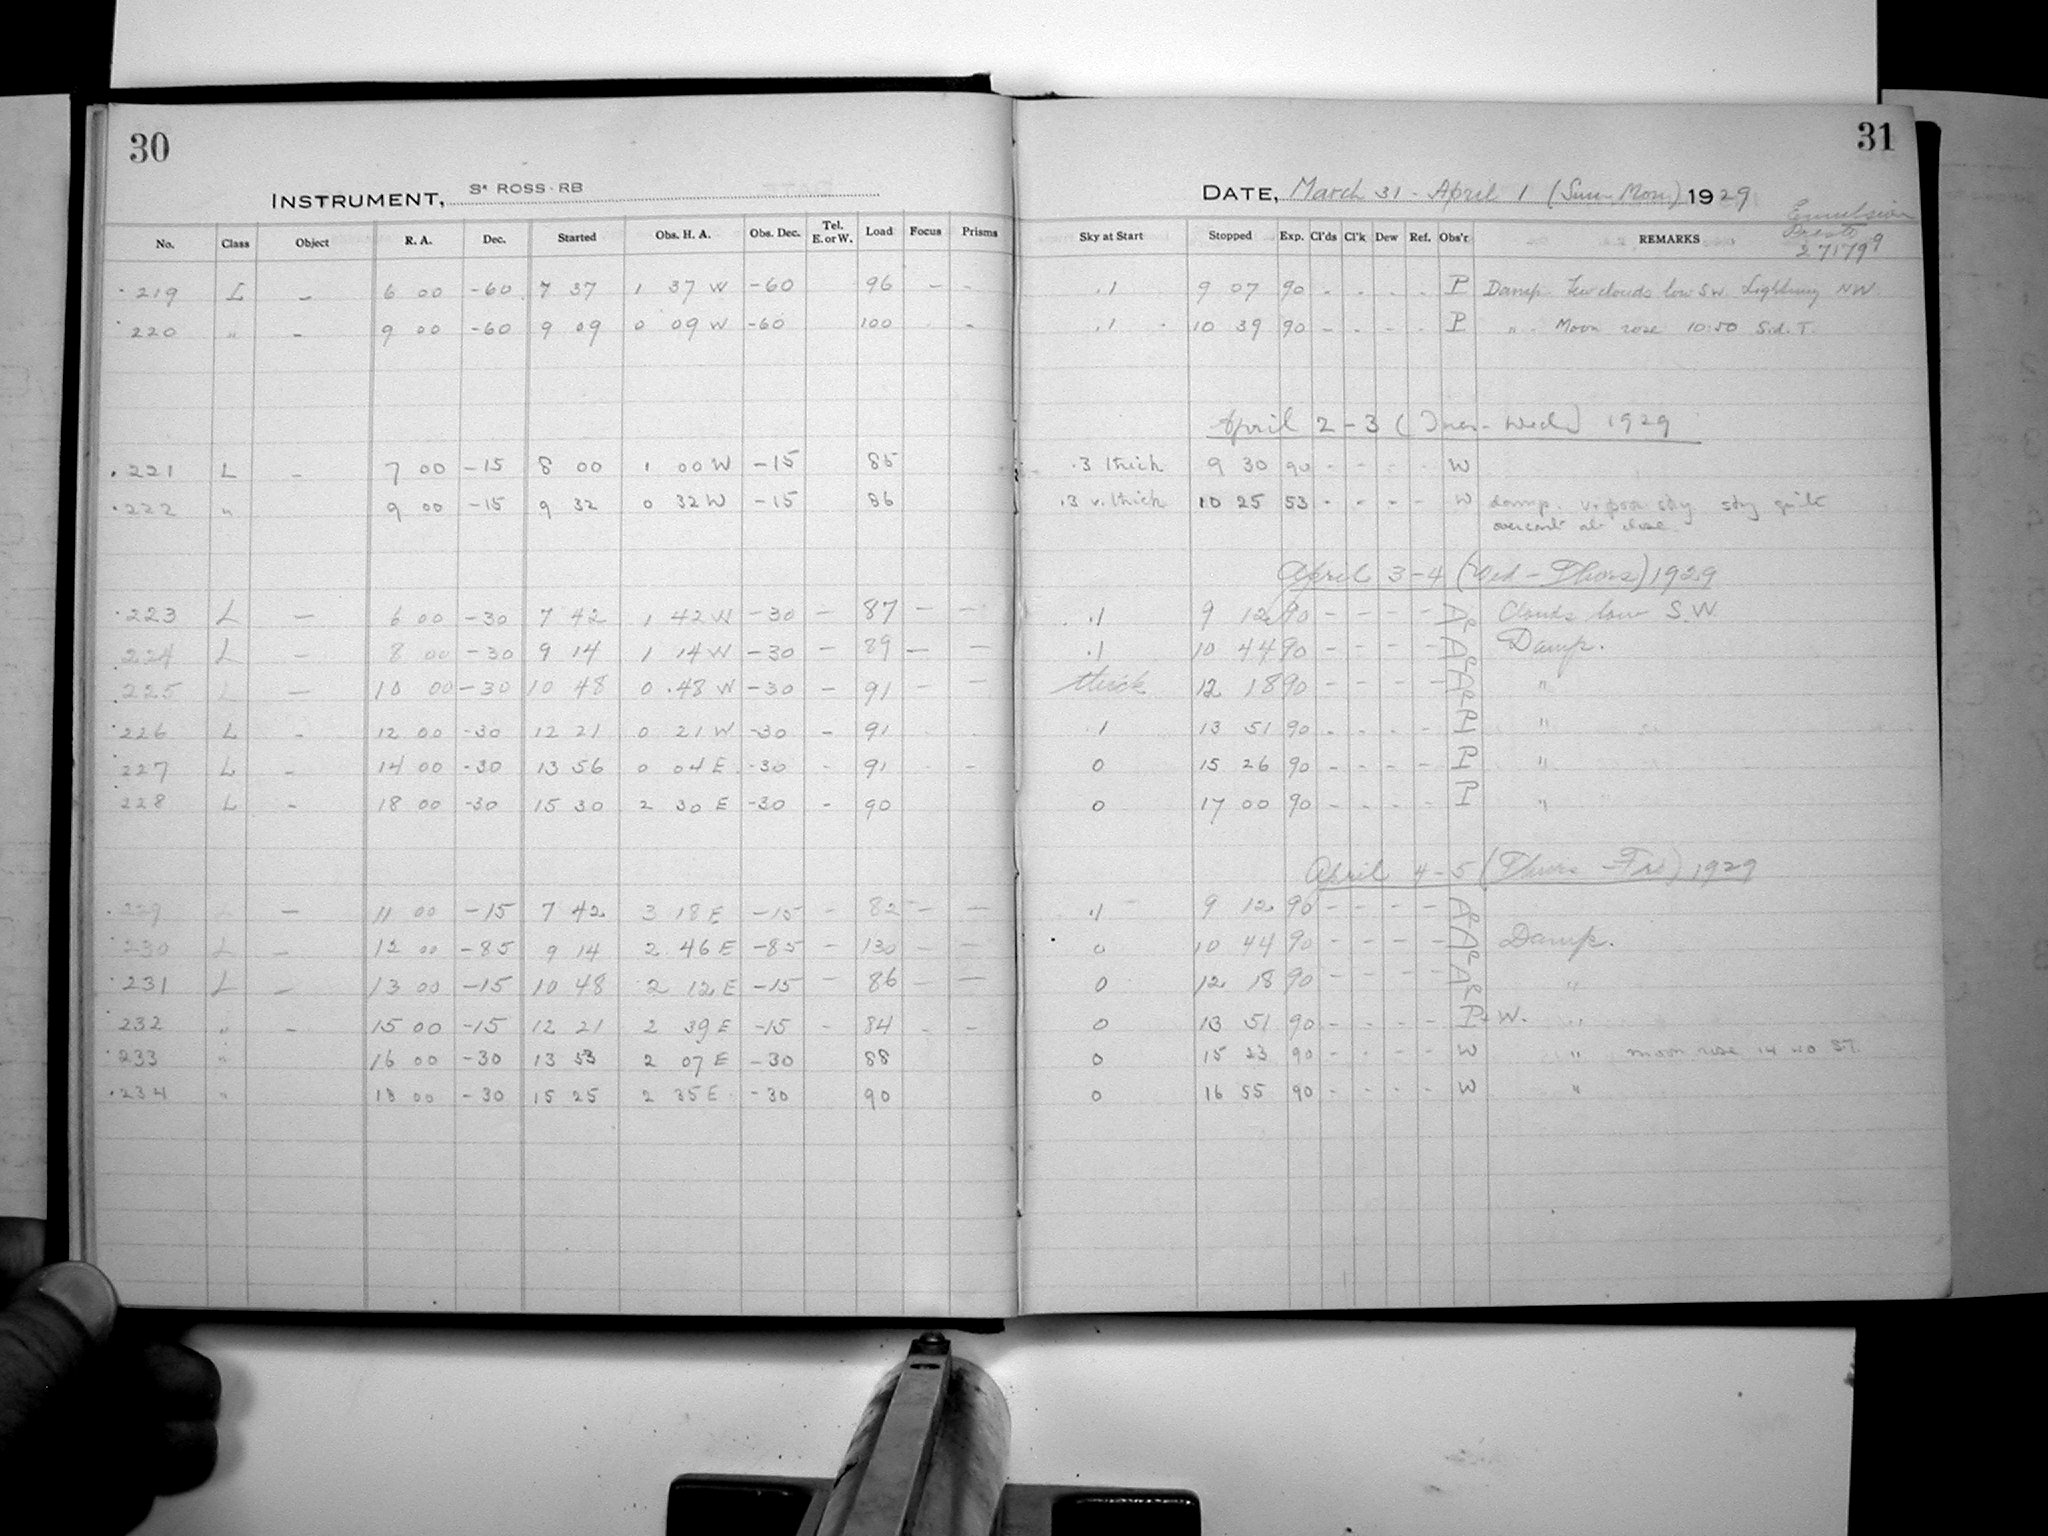 30
INSTRUMENT, Sª ROSS-RB
No. Class Object R. A. Dec. Started Obs. H. A. Obs. Dec. Tel. E. or W. Load Focus Prisms
219 L - 6 00 -60 7 37 1 37 W -60 96 - -
220 " - 9 00 -60 9 09 0 09 W -60 100 -
221 L - 7 00 -15 8 00 1 00 W -15 85
222 " 9 00 -15 9 32 0 32 W -15 86
223 L - 6 00 -30 7 42 1 42 W -30 - 87 - -
224 L - 8 00 -30 9 14 1 14 W -30 - 89 - -
225 L - 10 00 -30 10 48 0 48 W -30 - 91 - -
226 L - 12 00 -30 12 21 0 21 W -30 - 91
227 L - 14 00 -30 13 56 0 04 E -30 - 91 - -
228 L - 18 00 -30 15 30 2 30 E -30 - 90
229 L - 11 00 -15 7 42 3 18 E -15 - 82 - -
230 L - 12 00 -85 9 14 2 46 E -85 - 130 - -
231 L - 13 00 -15 10 48 2 12 E -15 - 86 - -
232 " - 15 00 -15 12 21 2 39 E -15 - 84 - -
233 " 16 00 -30 13 53 2 07 E -30 88
234 " 18 00 -30 15 25 2 35 E -30 90
31
DATE, March 31 - April 1 (Sun-Mon) 1929
Emulsion
Presto
271799
Sky at Start Stopped Exp. Cl'ds Cl'k Dew Ref. Obs'r. REMARKS
.1 9 07 90 - - - - P Damp. Few clouds low SW. Lightning NW.
.1 10 39 90 - - - - P " Moon rose 10:50 Sid. T.
April 2-3 (Tues-Wed) 1929
.3 thick 9 30 90 - - - - W
.3 v. thick 10 25 53 - - - - W damp. v. poor sky sky quite
overcast at close.
April 3-4 (Wed-Thurs) 1929
.1 9 12 90 - - - - Clouds low S.W
.1 10 44 90 - - - - Damp.
thick 12 18 90 - - - - "
.1 13 51 90 - - - - P "
0 15 26 90 - - - - P "
0 17 00 90 - - - - P "
April 4-5 (Thurs-Fri) 1929
.1 9 12 90 - - - -
0 10 44 90 - - - - Damp.
0 12 18 90 - - - - "
0 13 51 90 - - - - P + W. "
0 15 23 90 - - - - W " moon rise 14 40 ST.
0 16 55 90 - - - - W "